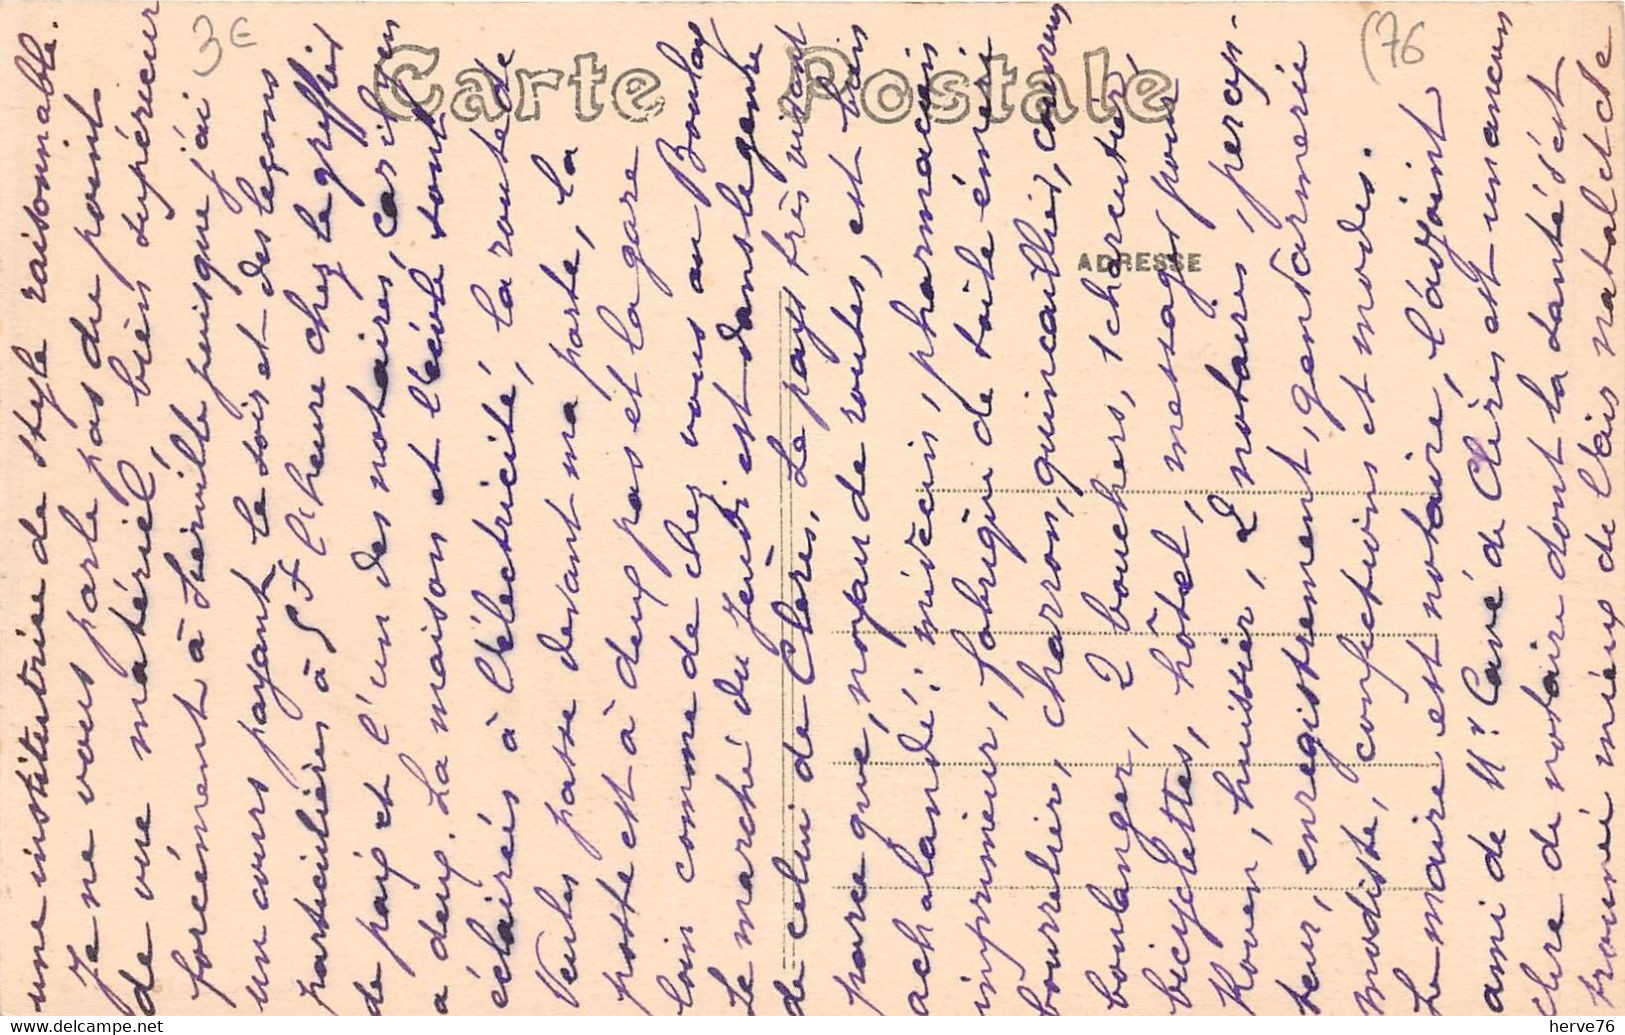 3€
(76
Carte Postale
ADRESSE
une institutrice de style raisonnable.
Je ne vous parle pas du point
de vue matériel, bien supérieur
forcément à puisque j'ai
un cours payant le soir et des leçons
particulières à 5f l'heure chez le greffier
de paix et l'un des notaires, car il y en
a deux. La maison et l'école sont
éclairées à l'électricité, la route de
Veules passe devant ma porte, la
poste est à deux pas et la gare
loin comme de chez vous au Boulay
Le marché du Jeudi est dans le genre
de celui de Clères. Le pays très vivant
parce que, noyau de routes, est bien
achalandé : médecin, pharmacien
imprimeur, fabrique de toile émeri
bourrelier, charron, quincaillier,
boulanger, 2 bouchers, 1 charcutier,
bicyclettes, hôtel, messager pour
Rouen, huissier, 2 notaires, percep-
teur, enregistrement, gendarmerie
modiste, confections et modes.
Le maire est notaire, l'adjoint
ami de Mr Cavé de Clères est un ancien
clerc de notaire dont la santé s'est
trouvée mieux de l'air natal et de
hervé - delcampe.net
herve76